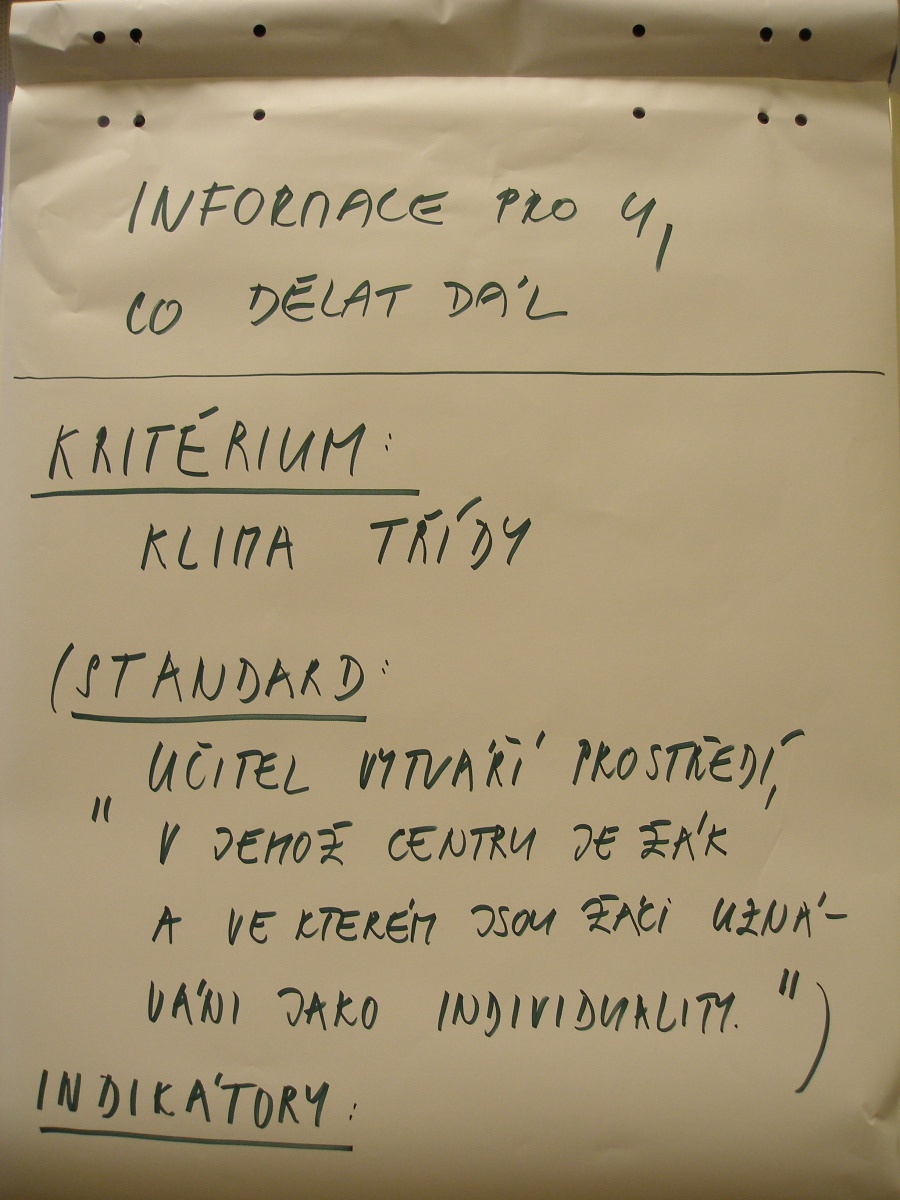 INFORMACE PRO U,
CO DĚLAT DÁL
KRITÉRIUM:
KLIMA TŘÍDY
(STANDARD:
" UČITEL VYTVÁŘÍ PROSTŘEDÍ,
V JEHOŽ CENTRU JE ŽÁK
A VE KTERÉM JSOU ŽÁCI UZNÁ-
VÁNI JAKO INDIVIDUALITY. ")
INDIKÁTORY: